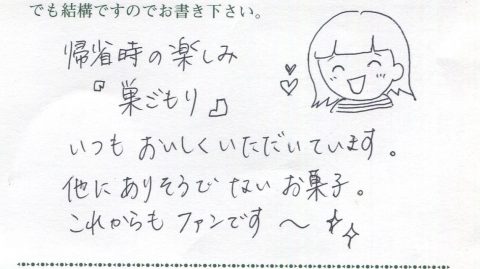 でも結構ですのでお書き下さい。
帰省時の楽しみ
『巣ごもり』
いつも おいしくいただいています。
他に ありそうで ない お菓子。
これからも ファンです 〜